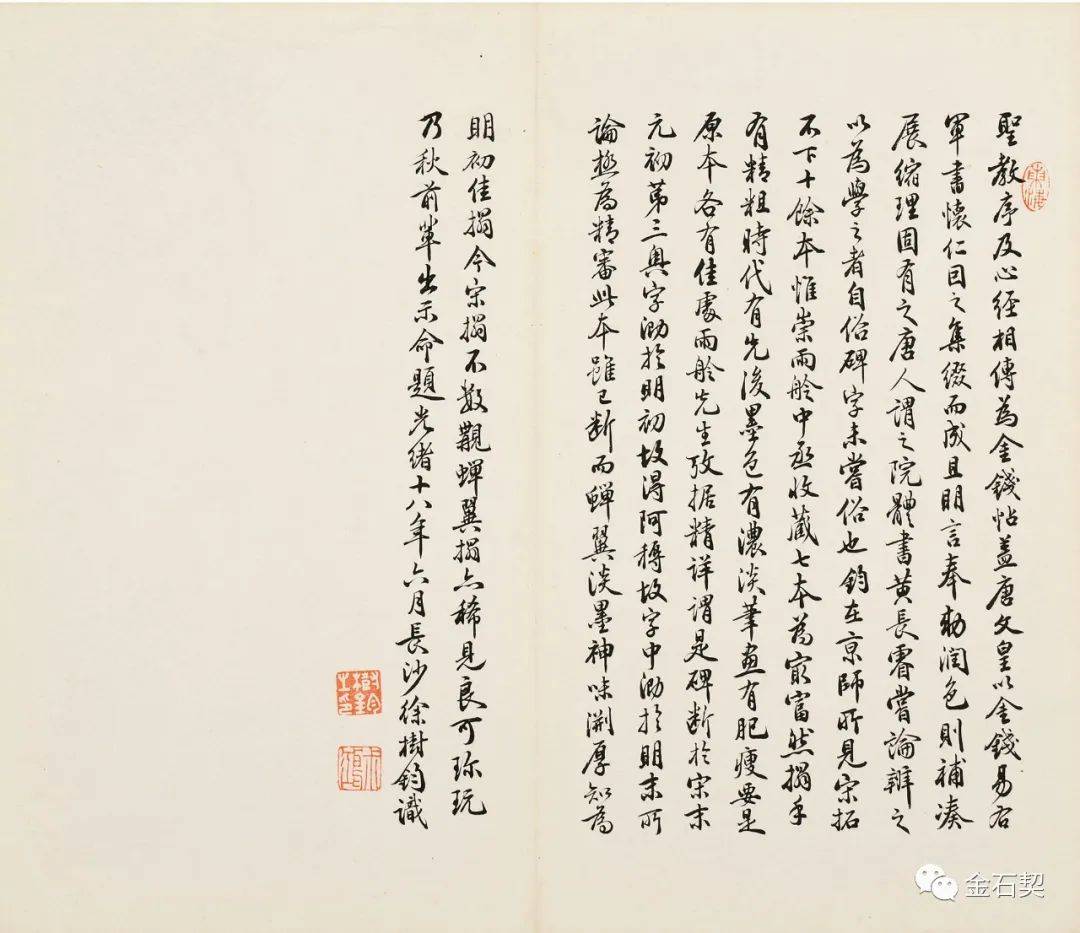 聖教序及心經相傳為金錢帖蓋唐文皇以金錢易右
軍書懷仁因之集綴而成且明言奉勅潤色則補湊
展縮理固有之唐人謂之院體書黃長睿嘗論辨之
以為學之者自俗碑字未嘗俗也鈞在京師所見宋拓
不下十餘本惟崇雨舲中丞收藏七本為宼富然搨手
有精粗時代有先後墨色有濃淡筆畫有肥瘦要是
原本各有佳處雨舲先生攷据精詳謂是碑斷於宋末
元初第三與字泐於明初故得阿耨故字中泐於明末所
論極為精審此本雖已斷而蟬翼淡墨神味淵厚知為
明初佳搨今宋搨不數覯蟬翼搨亦稀見良可珎玩
乃秋前輩出示命題光緒十八年六月長沙徐樹鈞識
樹鈞
之印
金石契